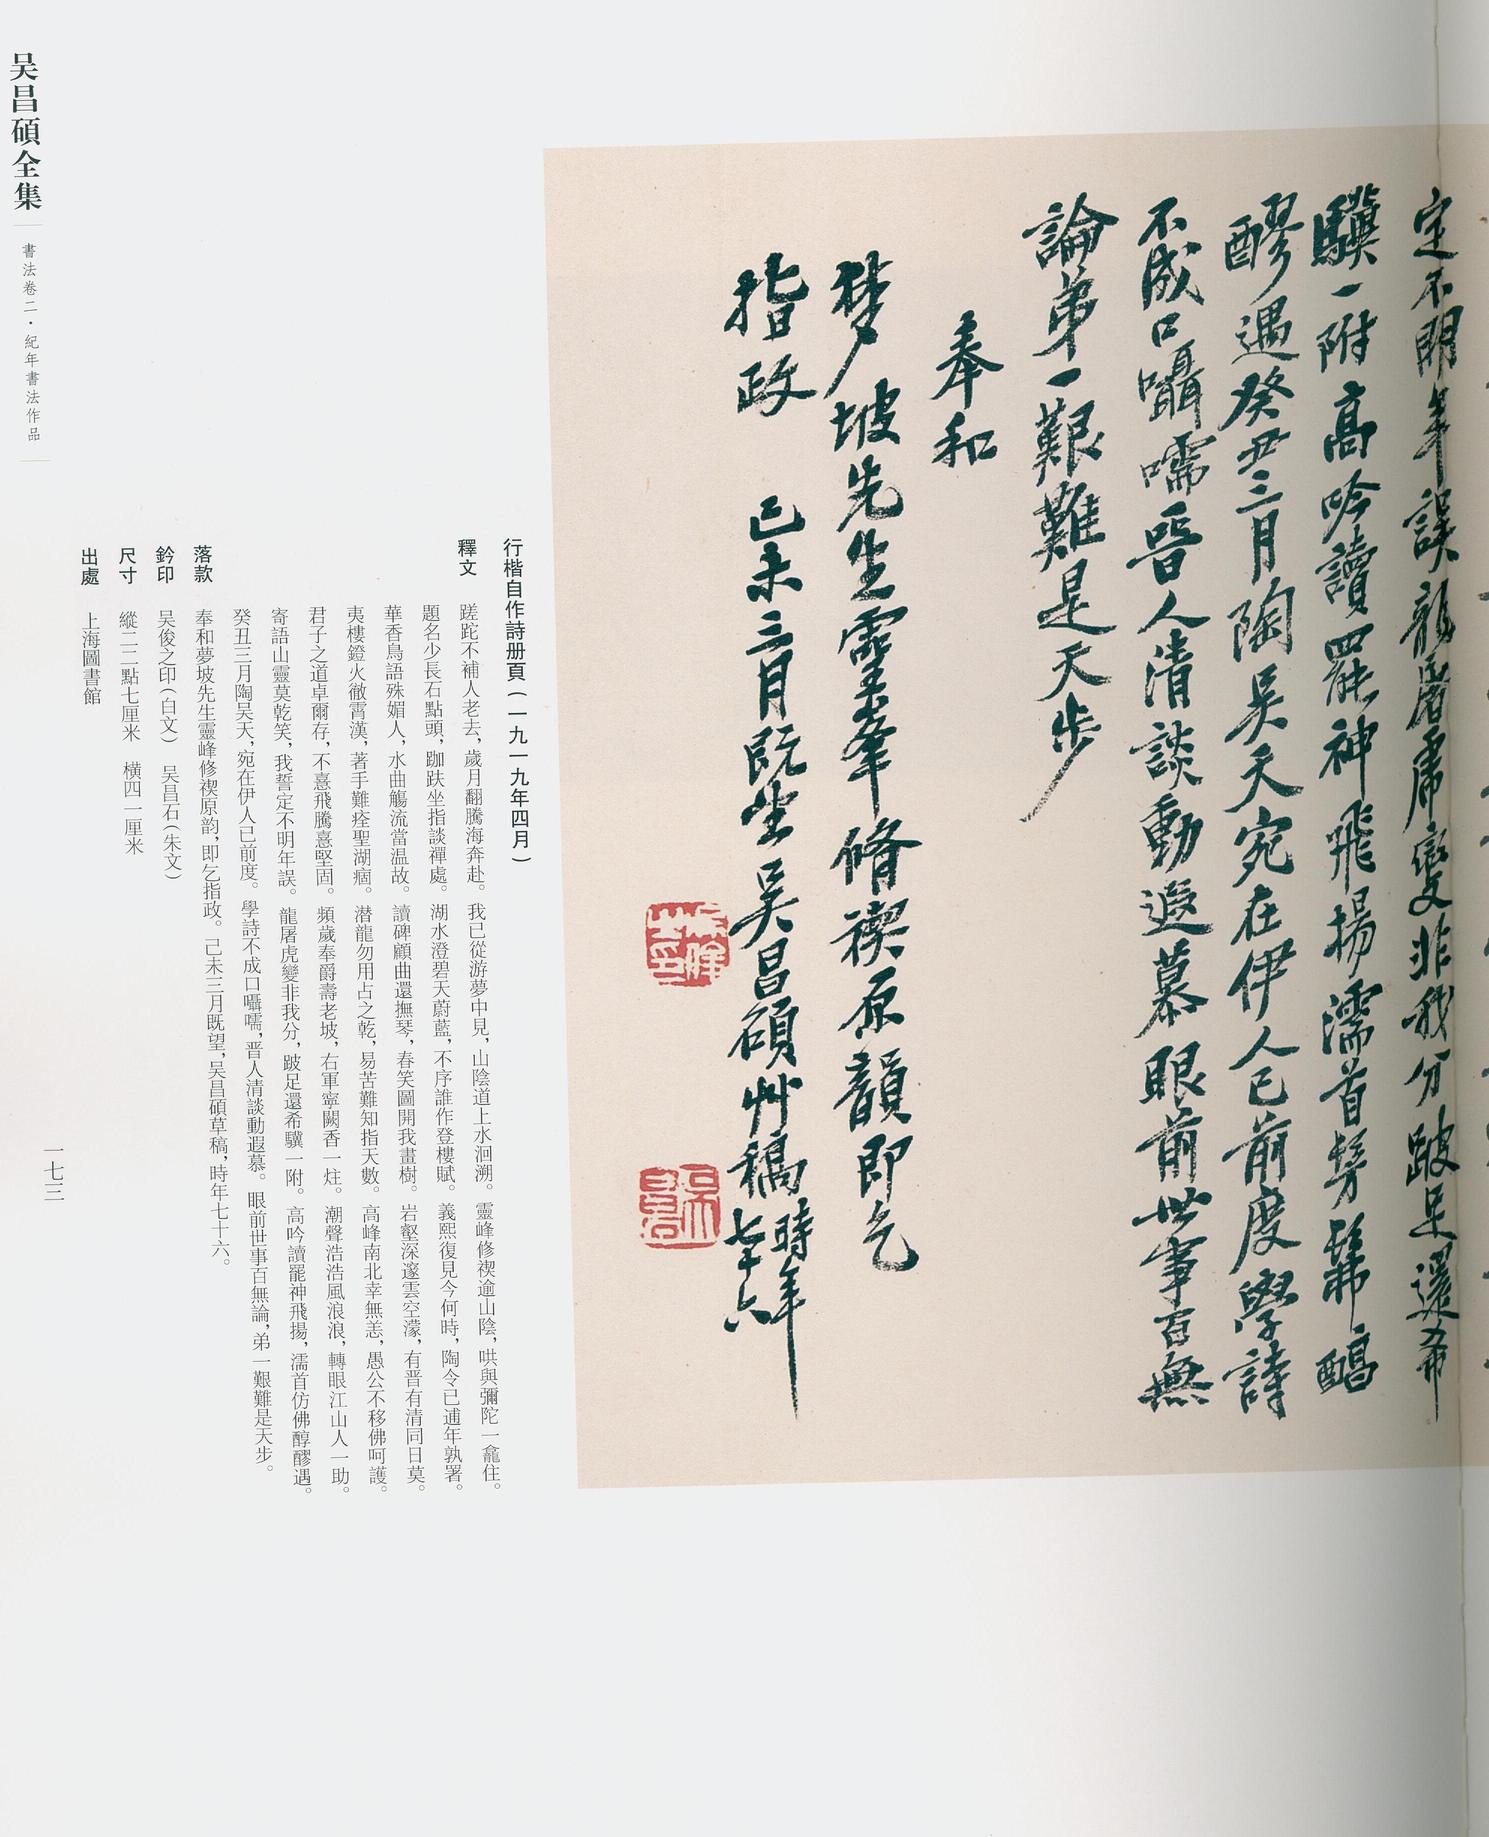 定不明年誤龍屠虎變非我分跛足還希
驥一附高吟讀罷神飛揚濡首髣髴醇
醪遇癸丑三月陶吳天宛在伊人已前度學詩
不成口囁嚅晉人清談動遐慕眼前世事百無
論弟一艱難是天步
奉和
夢坡先生靈峯脩禊原韻即乞
指政
己未三月既望吳昌碩艸稿時年
七十六
行楷自作詩册頁(一九一九年四月)
釋文 蹉跎不補人老去,歲月翻騰海奔赴。我已從游夢中見,山陰道上水洄溯。靈峰修禊逾山陰,哄與彌陀一龕住。
題名少長石點頭,跏趺坐指談禪處。湖水澄碧天蔚藍,不序誰作登樓賦。義熙復見今何時,陶令已逋年孰署。
華香鳥語殊媚人,水曲觴流當温故。讀碑顧曲還撫琴,春笑圖開我畫樹。岩壑深邃雲空濛,有晋有清同日莫。
夷樓鐙火徹霄漢,著手難痊聖湖痼。潜龍勿用占之乾,易苦難知指天數。高峰南北幸無恙,愚公不移佛呵護。
君子之道卓爾存,不憙飛騰憙堅固。頻歲奉爵壽老坡,右軍寧闕香一炷。潮聲浩浩風浪浪,轉眼江山人一助。
寄語山靈莫乾笑,我誓定不明年誤。龍屠虎變非我分,跛足還希驥一附。高吟讀罷神飛揚,濡首仿佛醇醪遇。
癸丑三月陶吴天,宛在伊人已前度。學詩不成口囁嚅,晋人清談動遐慕。眼前世事百無論,弟一艱難是天步。
落款 奉和夢坡先生靈峰修禊原韵,即乞指政。己未三月既望,吴昌碩草稿,時年七十六。
鈐印 吴俊之印(白文) 吴昌石(朱文)
尺寸 縱二二點七厘米 橫四一厘米
出處 上海圖書館
吴昌碩全集
書法卷二·紀年書法作品
一七三